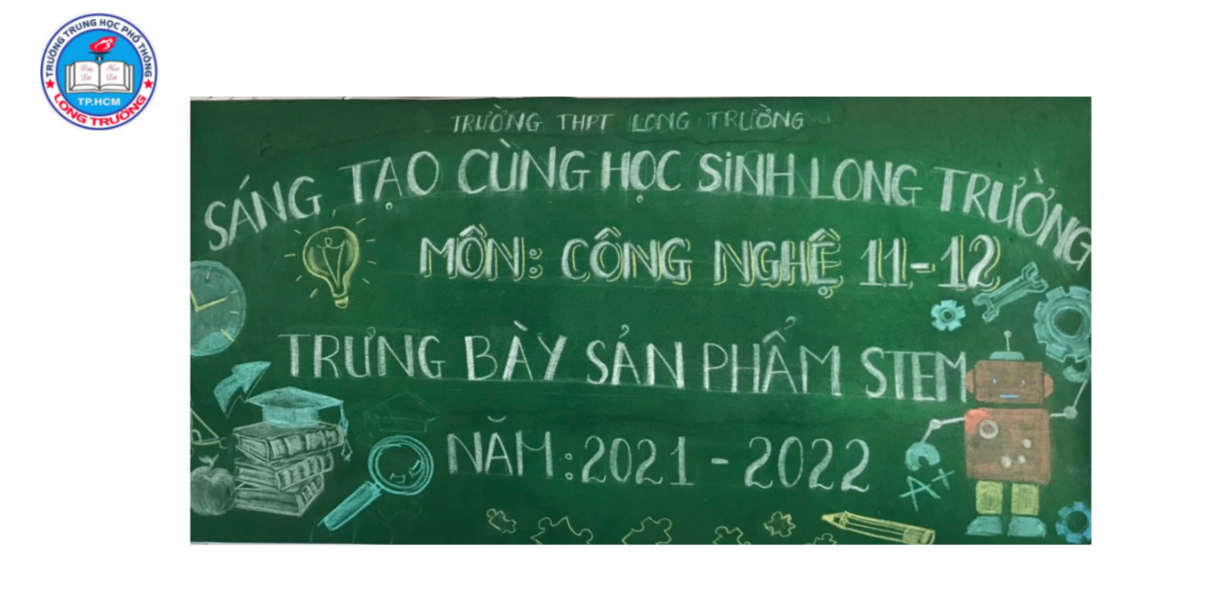 TRƯỜNG TRUNG HỌC PHỔ THÔNG
Dạy Tốt
Học Tốt
TP.HCM
LONG TRƯỜNG
TRƯỜNG THPT LONG TRƯỜNG
SÁNG TẠO CÙNG HỌC SINH LONG TRƯỜNG
MÔN: CÔNG NGHỆ 11-12
TRƯNG BÀY SẢN PHẨM STEM
NĂM: 2021 - 2022
A+